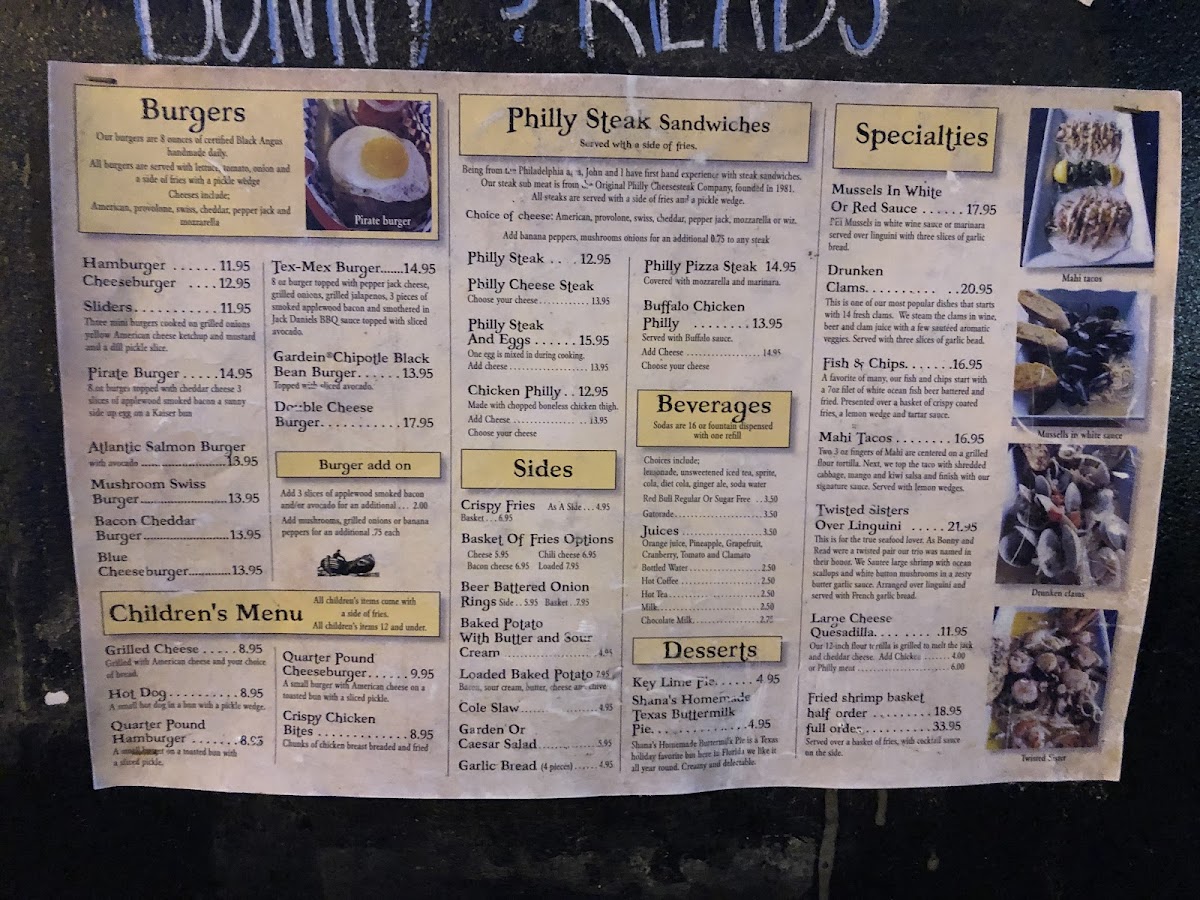 BONNY & READS
Burgers
Our burgers are 8 ounces of certified Black Angus
handmade daily.
All burgers are served with lettuce, tomato, onion and
a side of fries with a pickle wedge
Cheeses include;
American, provolone, swiss, cheddar, pepper jack and
mozzarella
Pirate burger
Hamburger ...... 11.95
Cheeseburger .... 12.95
Sliders............. 11.95
Three mini burgers cooked on grilled onions
yellow American cheese ketchup and mustard
and a dill pickle slice.
Pirate Burger ......14.95
8 oz burger topped with cheddar cheese 3
slices of applewood smoked bacon a sunny
side up egg on a Kaiser bun
Atlantic Salmon Burger
with avocado ..........................13.95
Mushroom Swiss
Burger.......................13.95
Bacon Cheddar
Burger.......................13.95
Blue
Cheeseburger..............13.95
Tex-Mex Burger.......14.95
8 oz burger topped with pepper jack cheese,
grilled onions, grilled jalapenos, 3 pieces of
smoked applewood bacon and smothered in
Jack Daniels BBQ sauce topped with sliced
avocado.
Gardein®Chipotle Black
Bean Burger...... 13.95
Topped with sliced avocado.
Double Cheese
Burger............ 17.95
Burger add on
Add 3 slices of applewood smoked bacon
and/or avocado for an additional ... 2.00
Add mushrooms, grilled onions or banana
peppers for an additional .75 each
Children's Menu
All children's items come with
a side of fries.
All children's items 12 and under.
Grilled Cheese ..... 8.95
Grilled with American cheese and your choice
of bread.
Hot Dog.......... 8.95
A small hot dog in a bun with a pickle wedge.
Quarter Pound
Hamburger ....... 8.95
A small burger on a toasted bun with
a sliced pickle.
Quarter Pound
Cheeseburger....... 9.95
A small burger with American cheese on a
toasted bun with a sliced pickle.
Crispy Chicken
Bites .............. 8.95
Chunks of chicken breast breaded and fried
Philly Steak Sandwiches
Served with a side of fries.
Being from the Philadelphia John and I have first hand experience with steak sandwiches.
Our steak sub meat is from Original Philly Cheesesteak Company, founded in 1981.
All steaks are served with a side of fries and a pickle wedge.
Choice of cheese: American, provolone, swiss, cheddar, pepper jack, mozzarella or wiz.
Add banana peppers, mushrooms onions for an additional 0.75 to any steak
Philly Steak .... 12.95
Philly Cheese Steak
Choose your cheese............... 13.95
Philly Steak
And Eggs ...... 15.95
One egg is mixed in during cooking.
Add cheese ..................... 13.95
Chicken Philly .. 12.95
Made with chopped boneless chicken thigh.
Add Cheese ................... 13.95
Choose your cheese
Philly Pizza Steak 14.95
Covered with mozzarella and marinara.
Buffalo Chicken
Philly ........ 13.95
Served with Buffalo sauce.
Add Cheese ............... 14.95
Choose your cheese
Sides
Crispy Fries As A Side ... 4.95
Basket ... 6.95
Basket Of Fries Options
Cheese 5.95 Chili cheese 6.95
Bacon cheese 6.95 Loaded 7.95
Beer Battered Onion
Rings Side .. 5.95 Basket ..7.95
Baked Potato
With Butter and Sour
Cream ................ 4.95
Loaded Baked Potato 7.95
Bacon, sour cream, butter, cheese and chive
Cole Slaw................ 4.95
Garden Or
Caesar Salad............ 5.95
Garlic Bread (4 pieces)...... 4.95
Beverages
Sodas are 16 oz fountain dispensed
with one refill
Choices include;
lemonade, unsweetened iced tea, sprite,
cola, diet cola, ginger ale, soda water
Red Bull Regular Or Sugar Free ..3.50
Gatorade.......................3.50
Juices .....................3.50
Orange juice, Pineapple, Grapefruit,
Cranberry, Tomato and Clamato
Bottled Water ...................2.50
Hot Coffee .....................2.50
Hot Tea ........................2.50
Milk...........................2.50
Chocolate Milk..................2.75
Desserts
Key Lime Pie...... 4.95
Shana's Homemade
Texas Buttermilk
Pie................4.95
Shana's Homemade Buttermilk Pie is a Texas
holiday favorite but here in Florida we like it
all year round. Creamy and delectable.
Specialties
Mussels In White
Or Red Sauce ...... 17.95
PEI Mussels in white wine sauce or marinara
served over linguini with three slices of garlic
bread.
Drunken
Clams.......... ..20.95
This is one of our most popular dishes that starts
with 14 fresh clams. We steam the clams in wine,
beer and clam juice with a few sautéed aromatic
veggies. Served with three slices of garlic bead.
Fish & Chips.......16.95
A favorite of many, our fish and chips start with
a 7oz filet of white ocean fish beer battered and
fried. Presented over a basket of crispy coated
fries, a lemon wedge and tartar sauce.
Mahi Tacos ........ 16.95
Two 3 oz fingers of Mahi are centered on a grilled
flour tortilla. Next, we top the taco with shredded
cabbage, mango and kiwi salsa and finish with our
signature sauce. Served with lemon wedges.
Twisted Sisters
Over Linguini ..... 21.95
This is for the true seafood lover. As Bonny and
Read were a twisted pair our trio was named in
their honor. We Sautee large shrimp with ocean
scallops and white button mushrooms in a zesty
butter garlic sauce. Arranged over linguini and
served with French garlic bread.
Large Cheese
Quesadilla....... .11.95
Our 12-inch flour tortilla is grilled to melt the jack
and cheddar cheese. Add Chicken ....... 4.00
or Philly meat ........................ 6.00
Fried shrimp basket
half order ......... 18.95
full order........... 33.95
Served over a basket of fries, with cocktail sauce
on the side.
Mahi tacos
Mussells in white sauce
Drunken clams
Twisted Sister